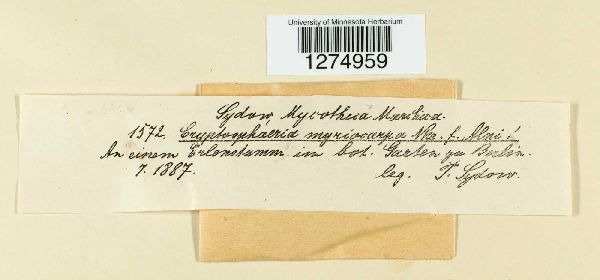 University of Minnesota Herbarium
1274959
Sydow, Mycotheca Marchica
1572. Cryptosphaeria myriocarpa Nke. f. Alni!
An einem Erlenstamm im bot. Garten zu Berlin.
7. 1887. leg. P. Sydow.